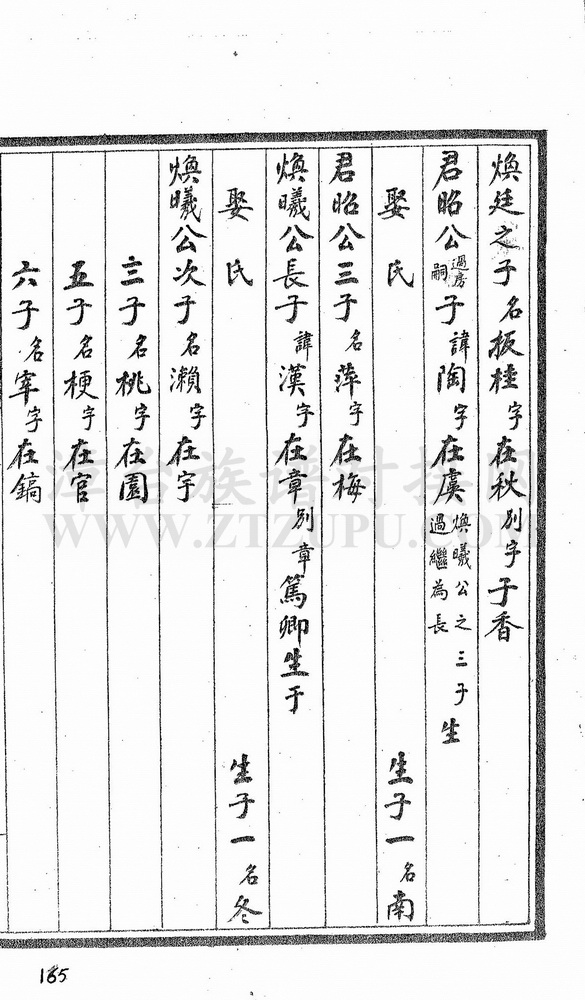 煥廷之子名扳桂字在秋別字子香
君昭公過房嗣子諱陶字在虞煥曦公之三子生過繼為長
娶氏生子一名南
君昭公三子名萍字在梅
煥曦公長子諱漢字在章別章篤卿生于
娶氏生子一名冬
煥曦公次子名瀨字在宇
三子名桃字在園
五子名梗字在官
六子名宰字在鎬
165
漳台族谱对接网
WWW.ZTZUPU.COM